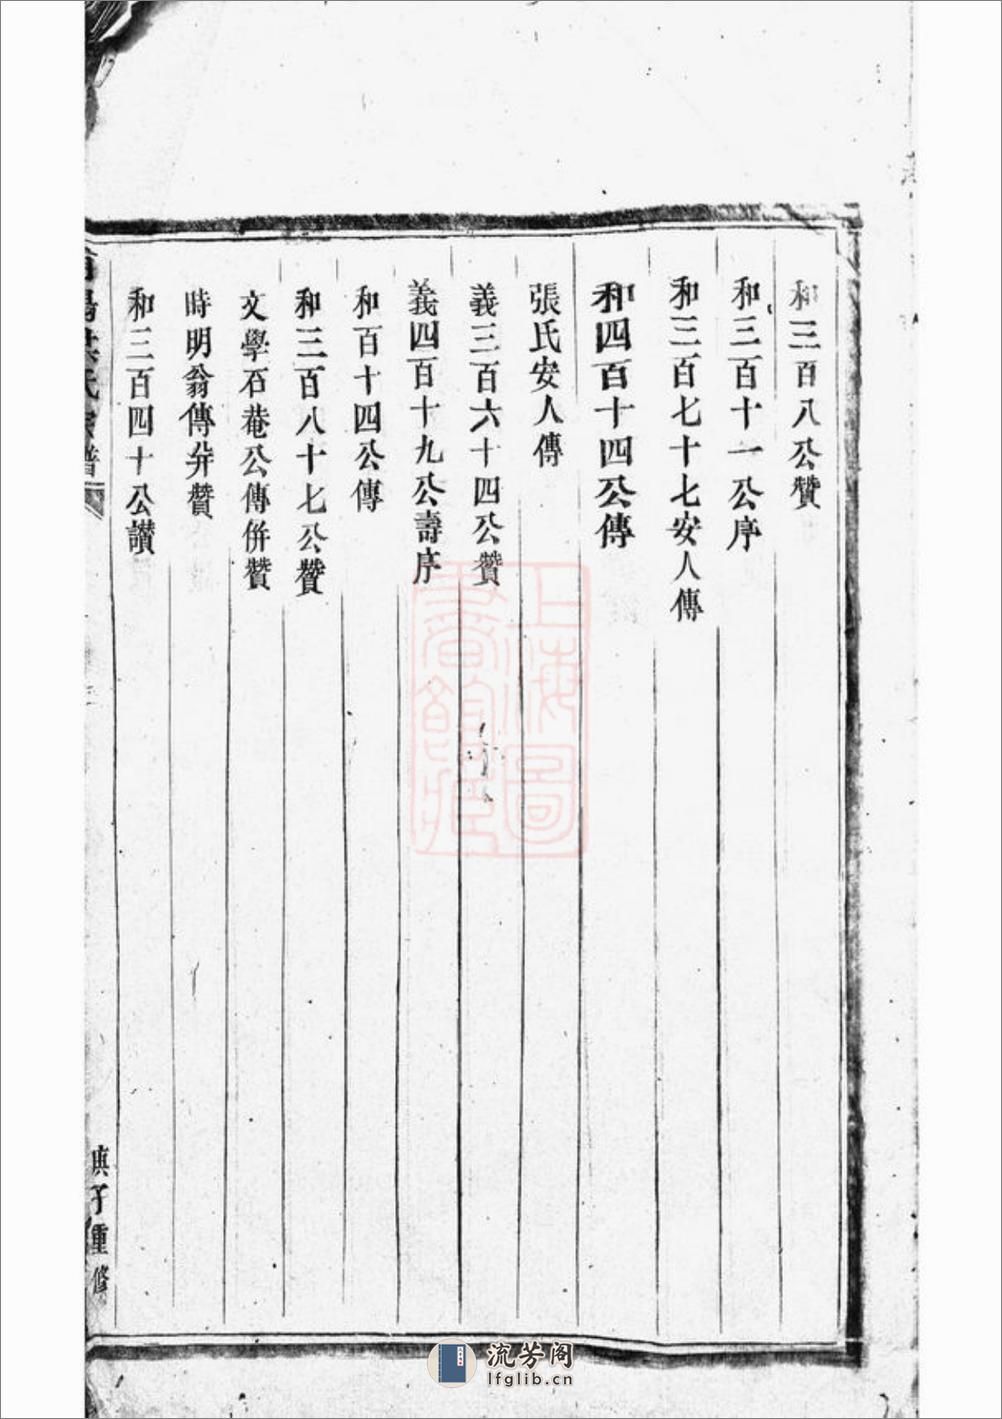 和三百八公贊
和三百十一公序
和三百七十七安人傳
和四百十四公傳
張氏安人傳
義三百六十四公贊
義四百十九公壽序
和百十四公傳
和三百八十七公贊
文學石菴公傳併贊
時明翁傳并贊
和三百四十公讃
氏宗譜
子重修
上海圖
書館藏
流芳阁
lfglib.cn